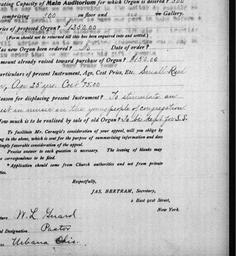 Seating Capacity of Main Auditorium for which Organ is desired?
comprising 300 on floor and in Gallery.
Price of proposed Organ? $1250.00
(Form should not be returned till this has been enquired into and settled.)
new Organ been ordered? Date of order?
Amount already raised toward purchase of Organ? $150.00
Particulars of present Instrument, Age, Cost Price, Etc. Small Reed
Age 25 yrs. Cost 75.00
Reason for displacing present Instrument? To stimulate an
in music in the young people of congregation
How much is to be realized by sale of old Organ? To be kept for S.S.
To facilitate Mr. Carnegie's consideration of your appeal, will you oblige by
in the above, which is sent for the purpose of summarizing information and does
imply favorable consideration of the appeal.
Precise answer to each question is necessary. The issuing of blanks may
correspondence to be filed.
Application should come from Church authorities and not from private
Respectfully,
JAS. BERTRAM, Secretary,
2 East 91st Street,
New York.
W. L. Guard
Official Designation. Pastor
Urbana Ohio.